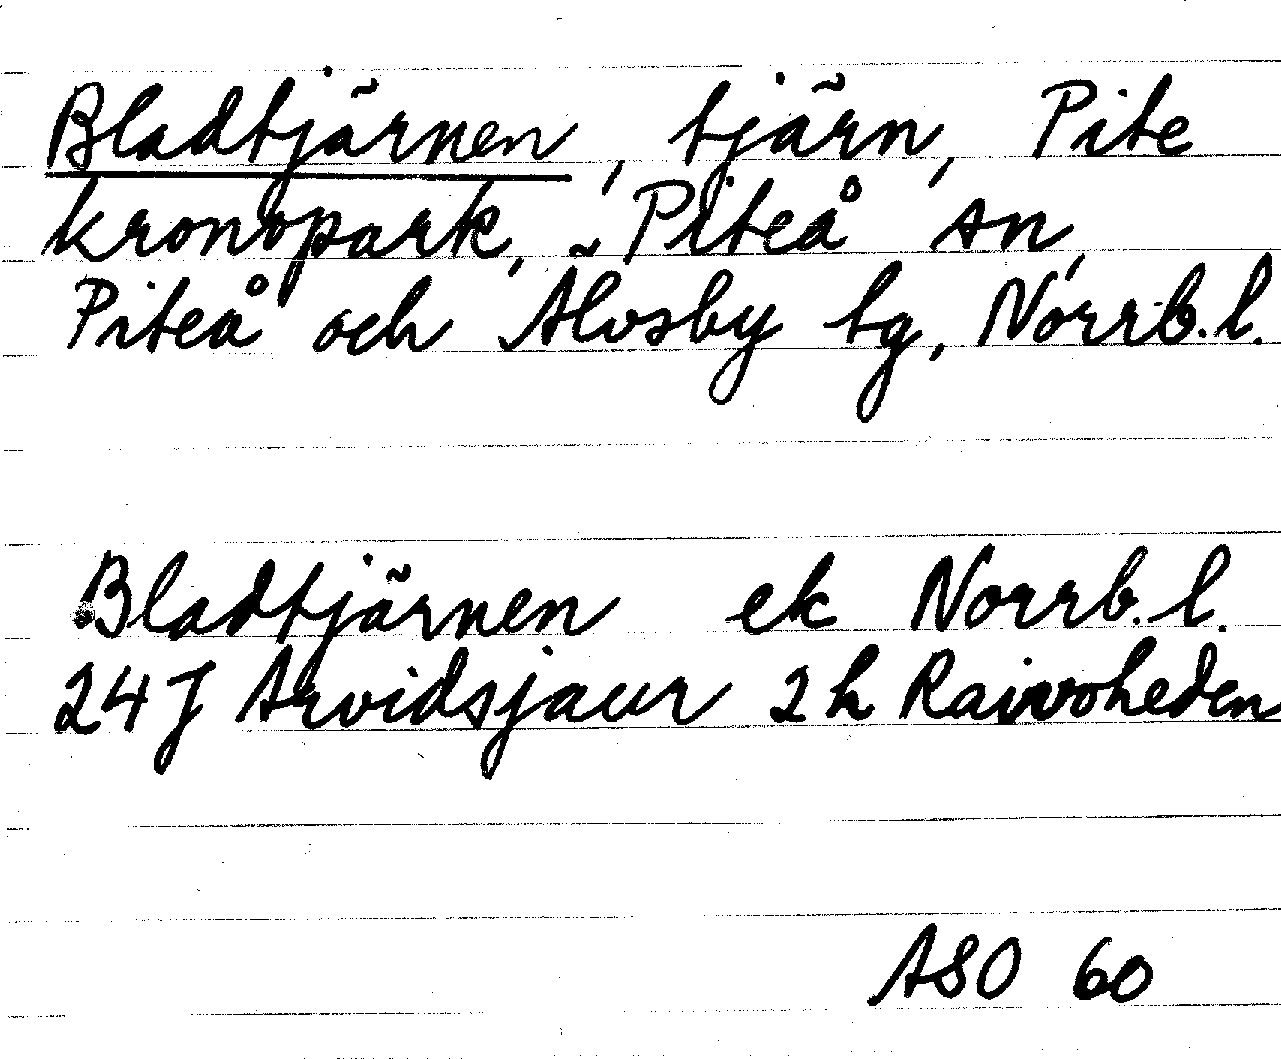 Bladtjärnen, tjärn, Pite
kronopark, Piteå sn,
Piteå och Älvsby tg, Norrb. l.
Bladtjärnen ek Norrb. l.
24J Arvidsjaur 2h Raivoheden
ASO 60